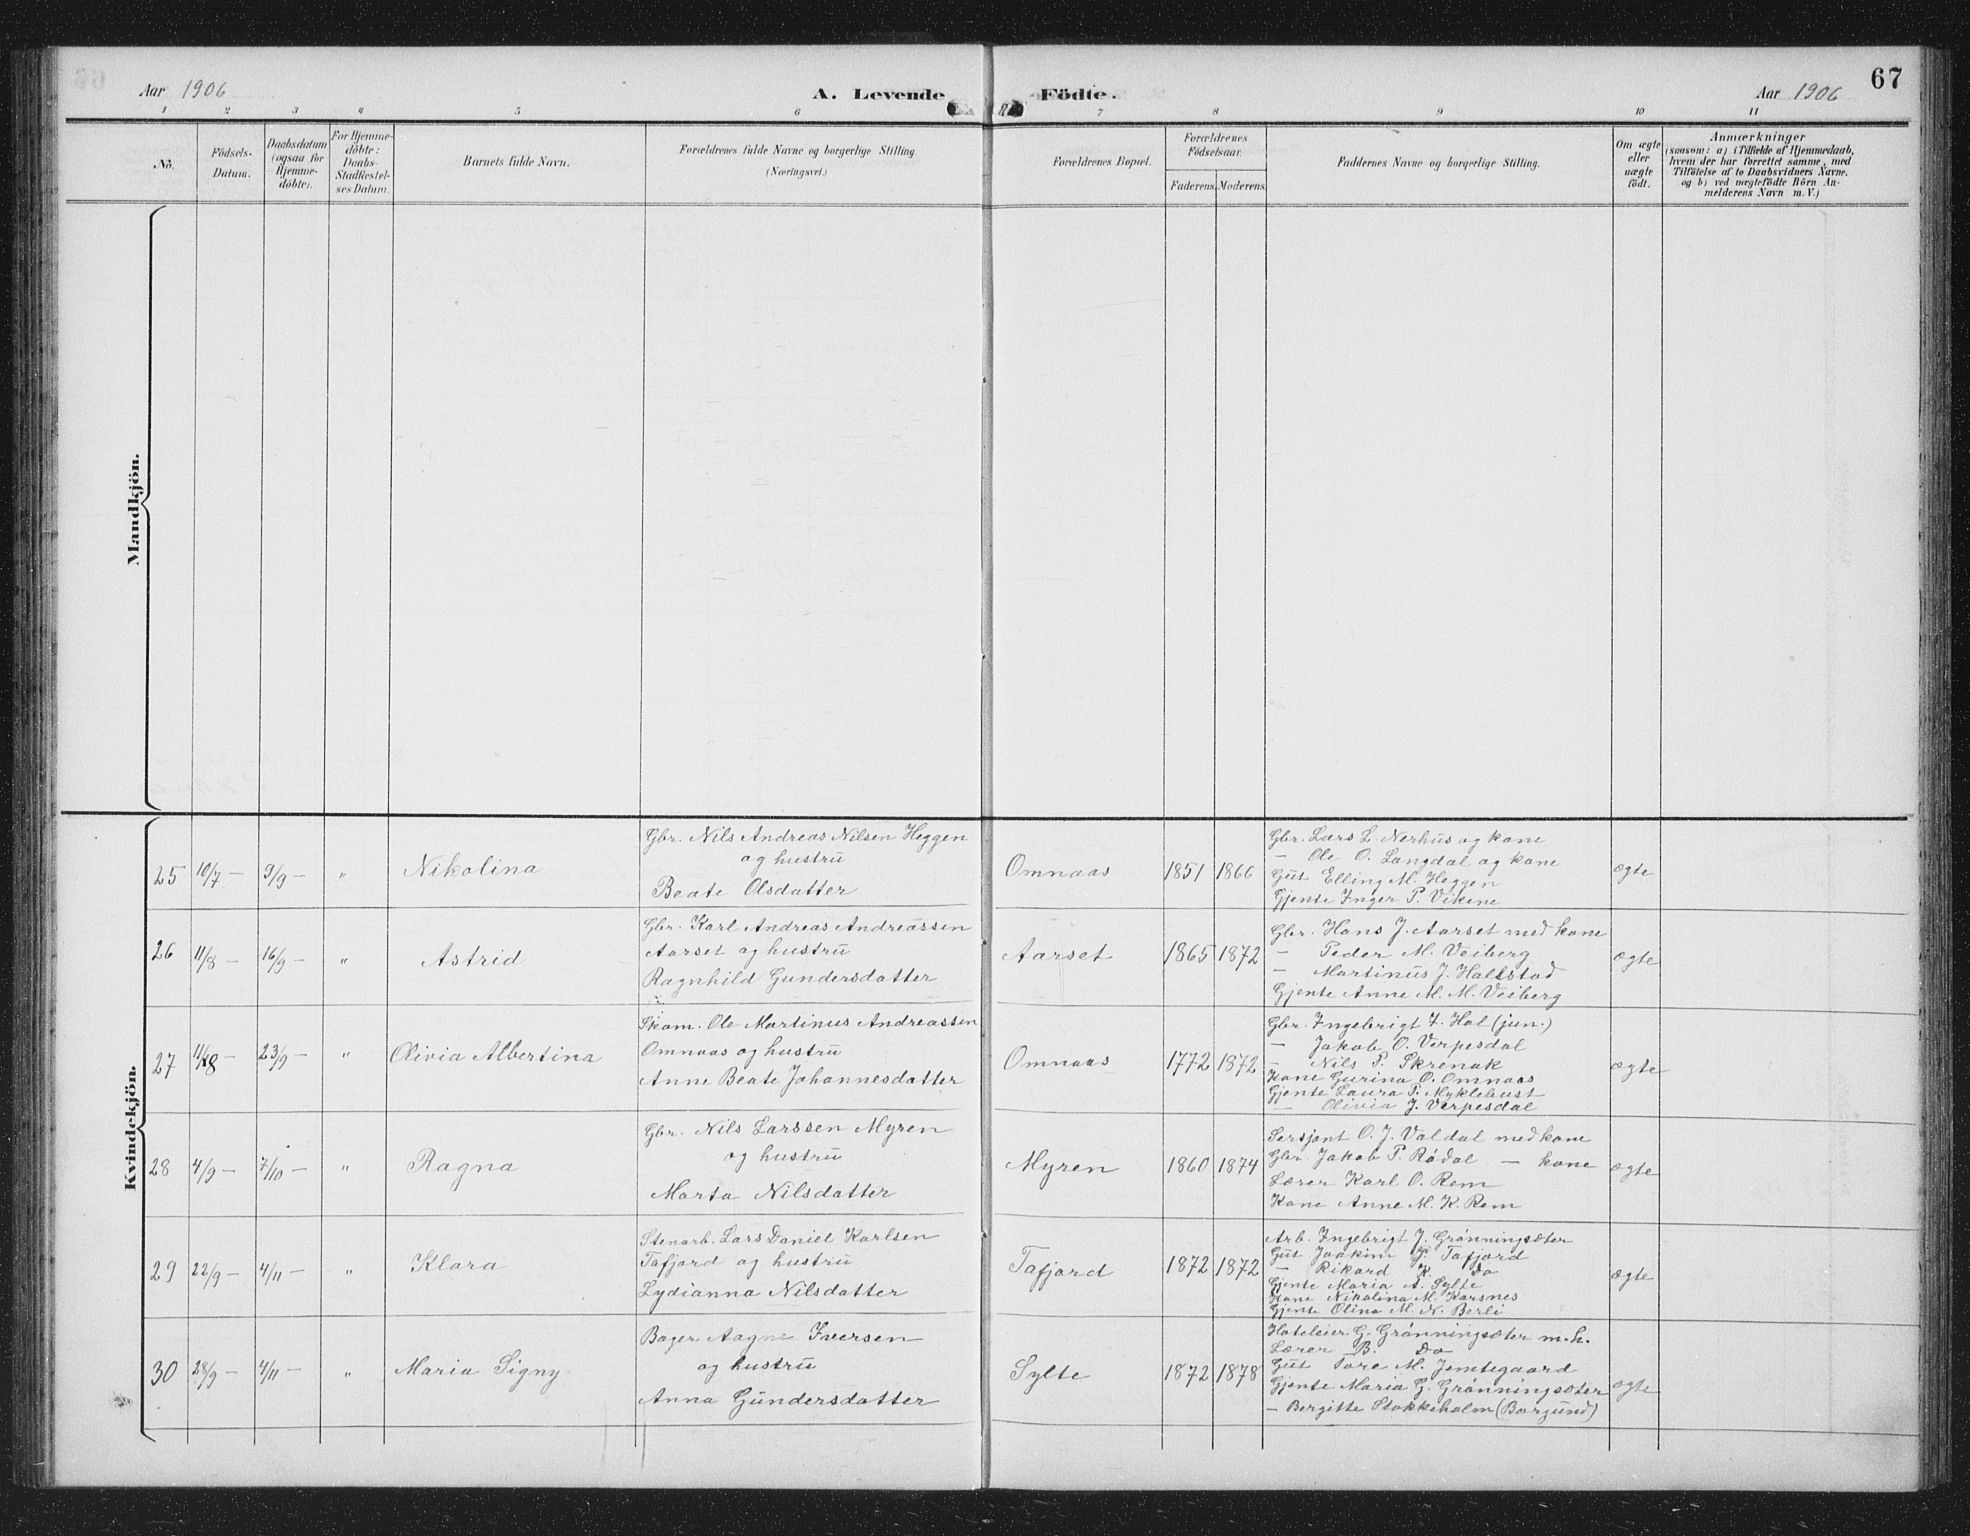 67
Aar 1906
A. Levende Födte.
Aar 1906
1 2 3 4 5 6 7 8 9 10 11
No.
Födsels-
Datum.
Daabsdatum
(ogsaa for
Hjemme-
döbte).
For Hjemme-
döbte:
Daabs-
Stadfæstel-
ses Datum.
Barnets fulde Navn.
Forældrenes fulde Navne og borgerlige Stilling.
(Næringsvei.)
Forældrenes Bopæl.
Forældrenes
Födselsaar.
Faderens. Moderens.
Faddernes Navne og borgerlige Stilling.
Om ægte
eller
uægte
födt.
Anmærkninger
(saasom: a) i Tilfælde af Hjemmedaab,
hvem der har forrettet samme, med
Tilföielse af to Daabsvidners Navne.
og b) ved uægtefödte Börn An-
melderens Navn m. V.)
Mandkjön.
Kvindekjön.
25 10/7 – 9/9 – " Nikolina
Gbr. Nils Andreas Nilsen Heggen
og hustru
Beate Olsdatter
Omnaas 1851 1866
Gbr. Lars L. Nerhus og kone
– Ole O. Langdal og kone
Gut Elling M. Heggen
Gjente Inger P. Vikene
ægte
26 11/8 – 16/9 – " Astrid
Gbr. Karl Andreas Andreassen
Aarset og hustru
Ragnhild Gundersdatter
Aarset 1865 1872
Gbr. Hans J. Aarset med kone
– Peder M. Veiberg
– Martinus J. Hallstad
Gjente Anne M. M. Veiberg
ægte
27 11/8 – 23/9 – " Olivia Albertina
Skom. Ole Martinus Andreassen
Omnaas og hustru
Anne Beate Johannesdatter
Omnaas 1772 1872
Gbr. Ingebrigt I. Hol (jun.)
– Jakob O. Verpesdal
– Nils P. Skrenak
Kone Gurina O. Omnaas
Gjente Laura P. Myklebust
– Olivia J. Verpesdal
ægte
28 4/9 – 7/10 – " Ragna
Gbr. Nils Larssen Myren
og hustru
Marta Nilsdatter
Myren 1860 1874
Sersjant O. J. Valdal med kone
Gbr. Jakob P. Rødal – kone
Lærer Karl O. Rem
Kone Anne M. K. Rem
ægte
29 22/9 – 4/11 – " Klara
Stenarb. Lars Daniel Karlsen
Tafjord og hustru
Lydianna Nilsdatter
Tafjord 1872 1872
Arb. Ingebrigt J. Grønningsæter
Gut Joakim J. Tafjord
– Rikard K. Do
Gjente Maria A. Sylte
Kone Nikolina M. Korsnes
Gjente Olina M. N. Berli
ægte
30 28/9 – 4/11 – " Maria Signy
Bager Aagne Iversen
og hustru
Anna Gundersdatter
Sylte 1872 1878
Hoteleier G. Grønningsæter m. h.
Lærer B. Do
Gut Tore M. Jemtegaard
Gjente Maria G. Grønningsæter
– Bergitte Stokkeholm (Borgund)
ægte